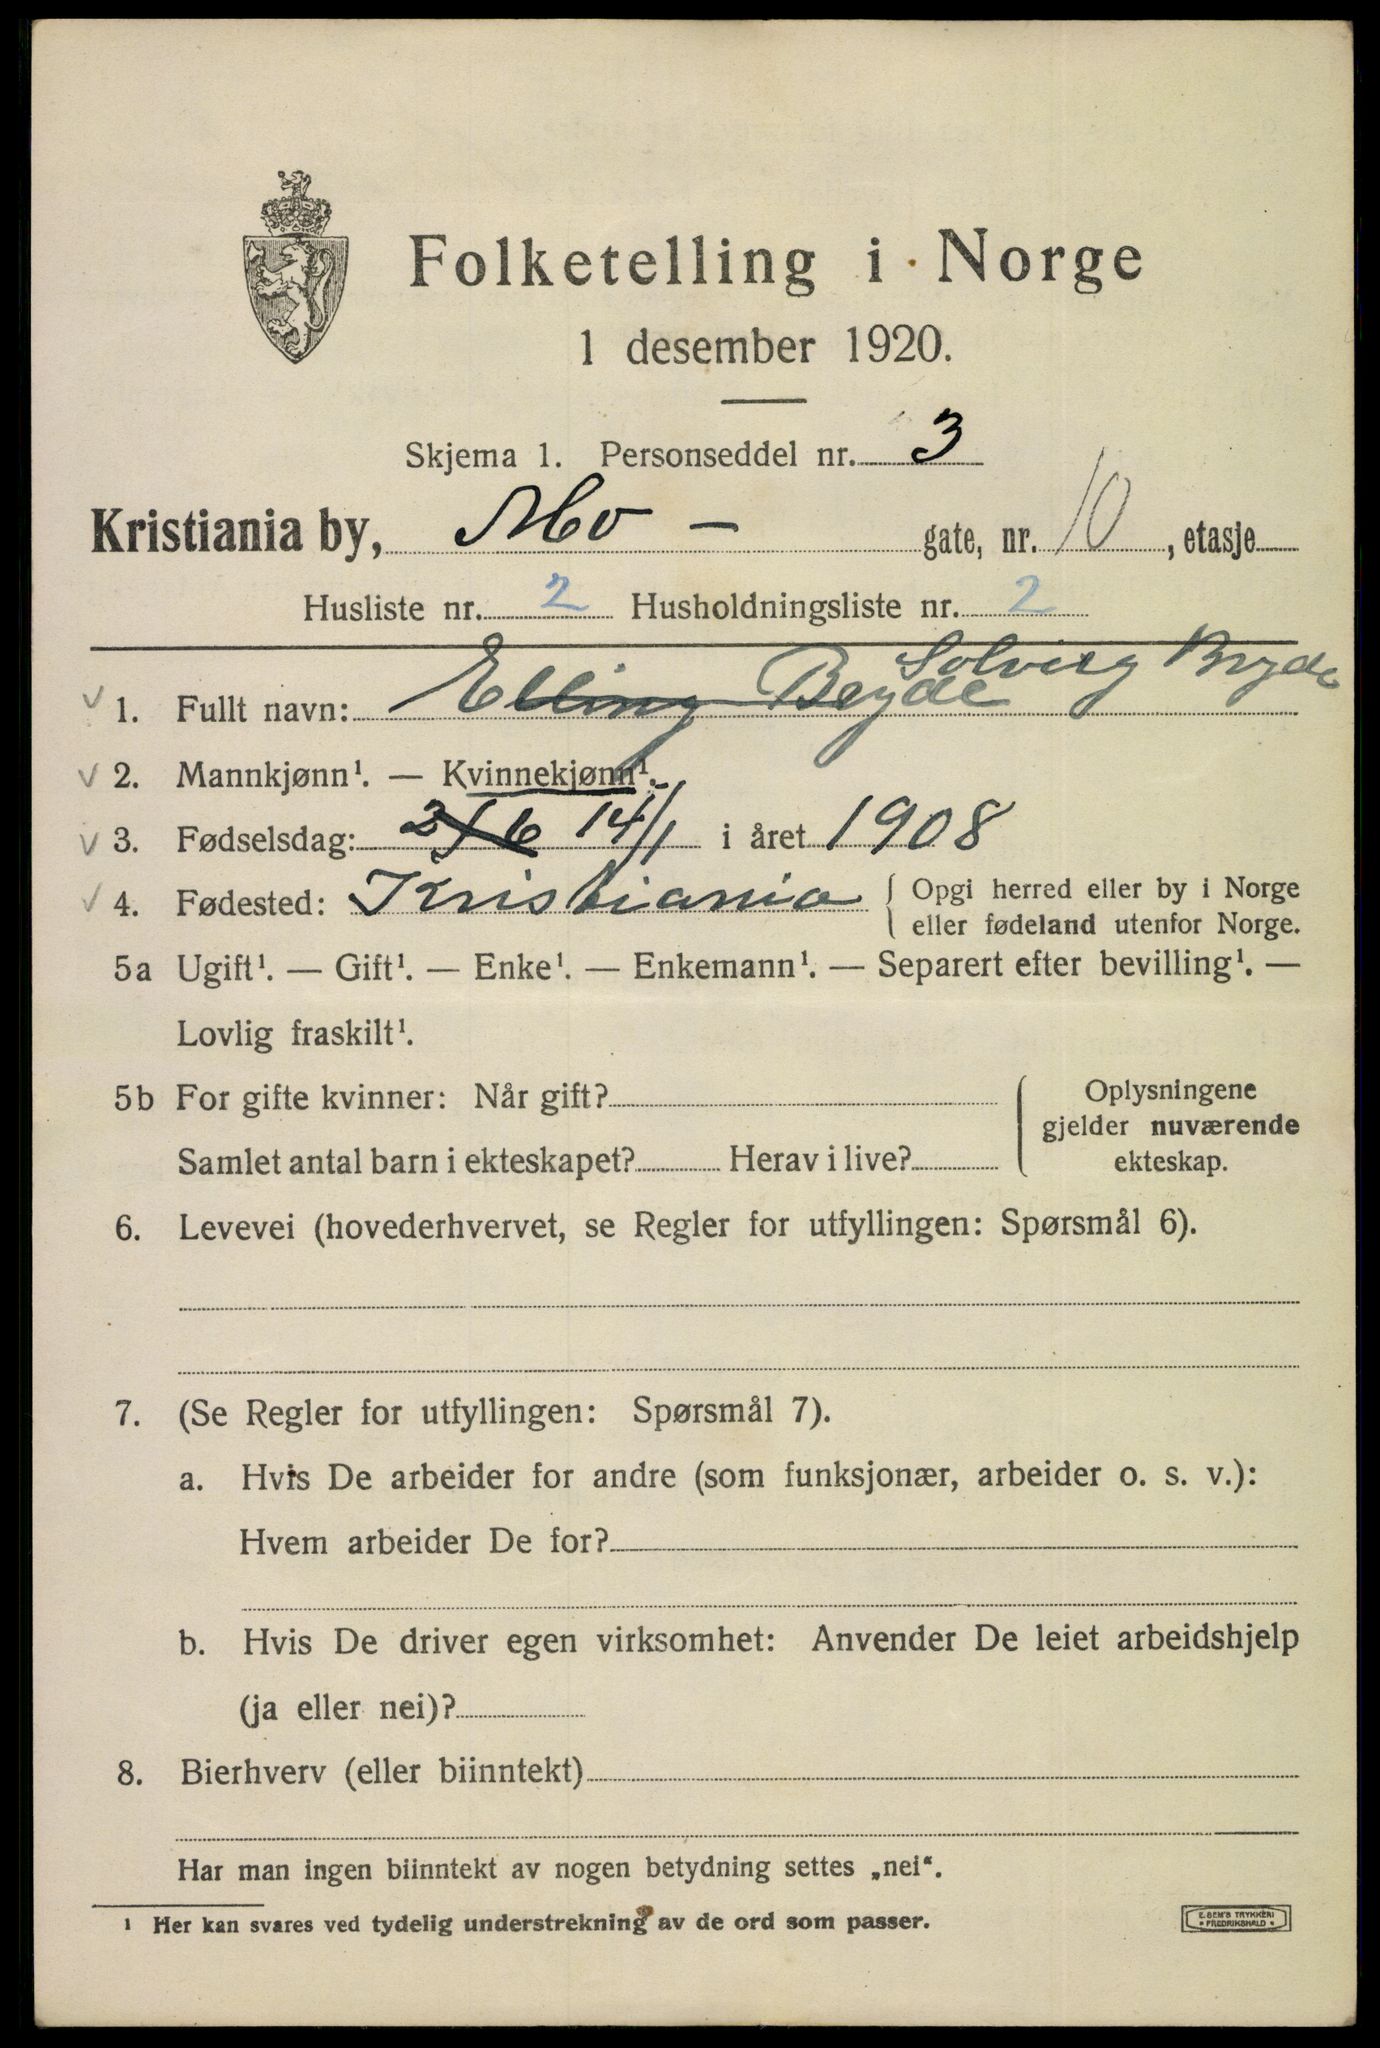 Folketelling i Norge
1 desember 1920.
Skjema 1. Personseddel nr. 3
Kristiania by, Mo - gate, nr. 10, etasje
Husliste nr. 2 Husholdningsliste nr. 2
Solveig Bryde
1. Fullt navn: Elling Bryde
2. Mannkjønn¹. — Kvinnekjønn¹.
3. Fødselsdag: 2/6 14/1 i året 1908
4. Fødested: Kristiania { Opgi herred eller by i Norge
eller fødeland utenfor Norge.
5a Ugift¹. — Gift¹. — Enke¹. — Enkemann¹. — Separert efter bevilling¹. —
Lovlig fraskilt¹.
5b For gifte kvinner: Når gift? { Oplysningene
gjelder nuværende
Samlet antal barn i ekteskapet? Herav i live? ekteskap.
6. Levevei (hovederhvervet, se Regler for utfyllingen: Spørsmål 6).
7. (Se Regler for utfyllingen: Spørsmål 7).
a. Hvis De arbeider for andre (som funksjonær, arbeider o. s. v.):
Hvem arbeider De for?
b. Hvis De driver egen virksomhet: Anvender De leiet arbeidshjelp
(ja eller nei)?
8. Bierhverv (eller biinntekt)
Har man ingen biinntekt av nogen betydning settes „nei“.
¹ Her kan svares ved tydelig understrekning av de ord som passer.
E. SEM'S TRYKKERI
FREDRIKSHALD